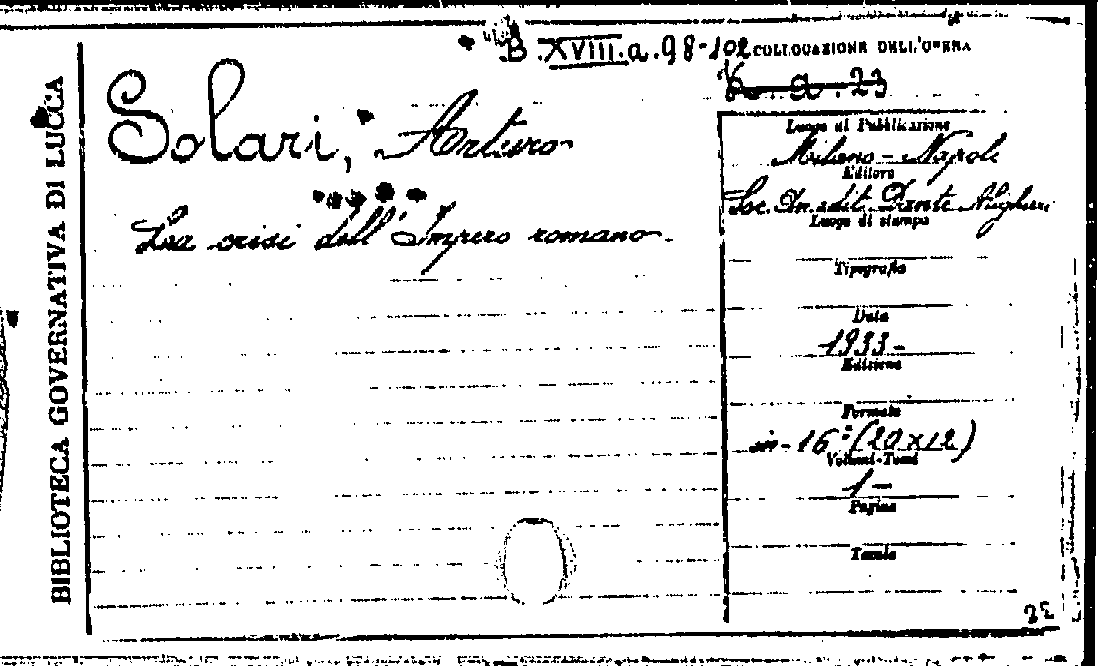 BIBLIOTECA GOVERNATIVA DI LUCCA
B. XVIII.a.98-102 COLLOCAZIONE DELL'OPERA
a. 23
Solari, Arturo
La crisi dell'Impero romano.
Luogo di Pubblicazione
Milano - Napoli
Editore
Soc. An. edit. Dante Alighieri
Luogo di stampa
Tipografia
Data
1933-
Edizione
Formato
in-16° (20x12)
Volumi-Tomi
1-
Pagine
Tavole